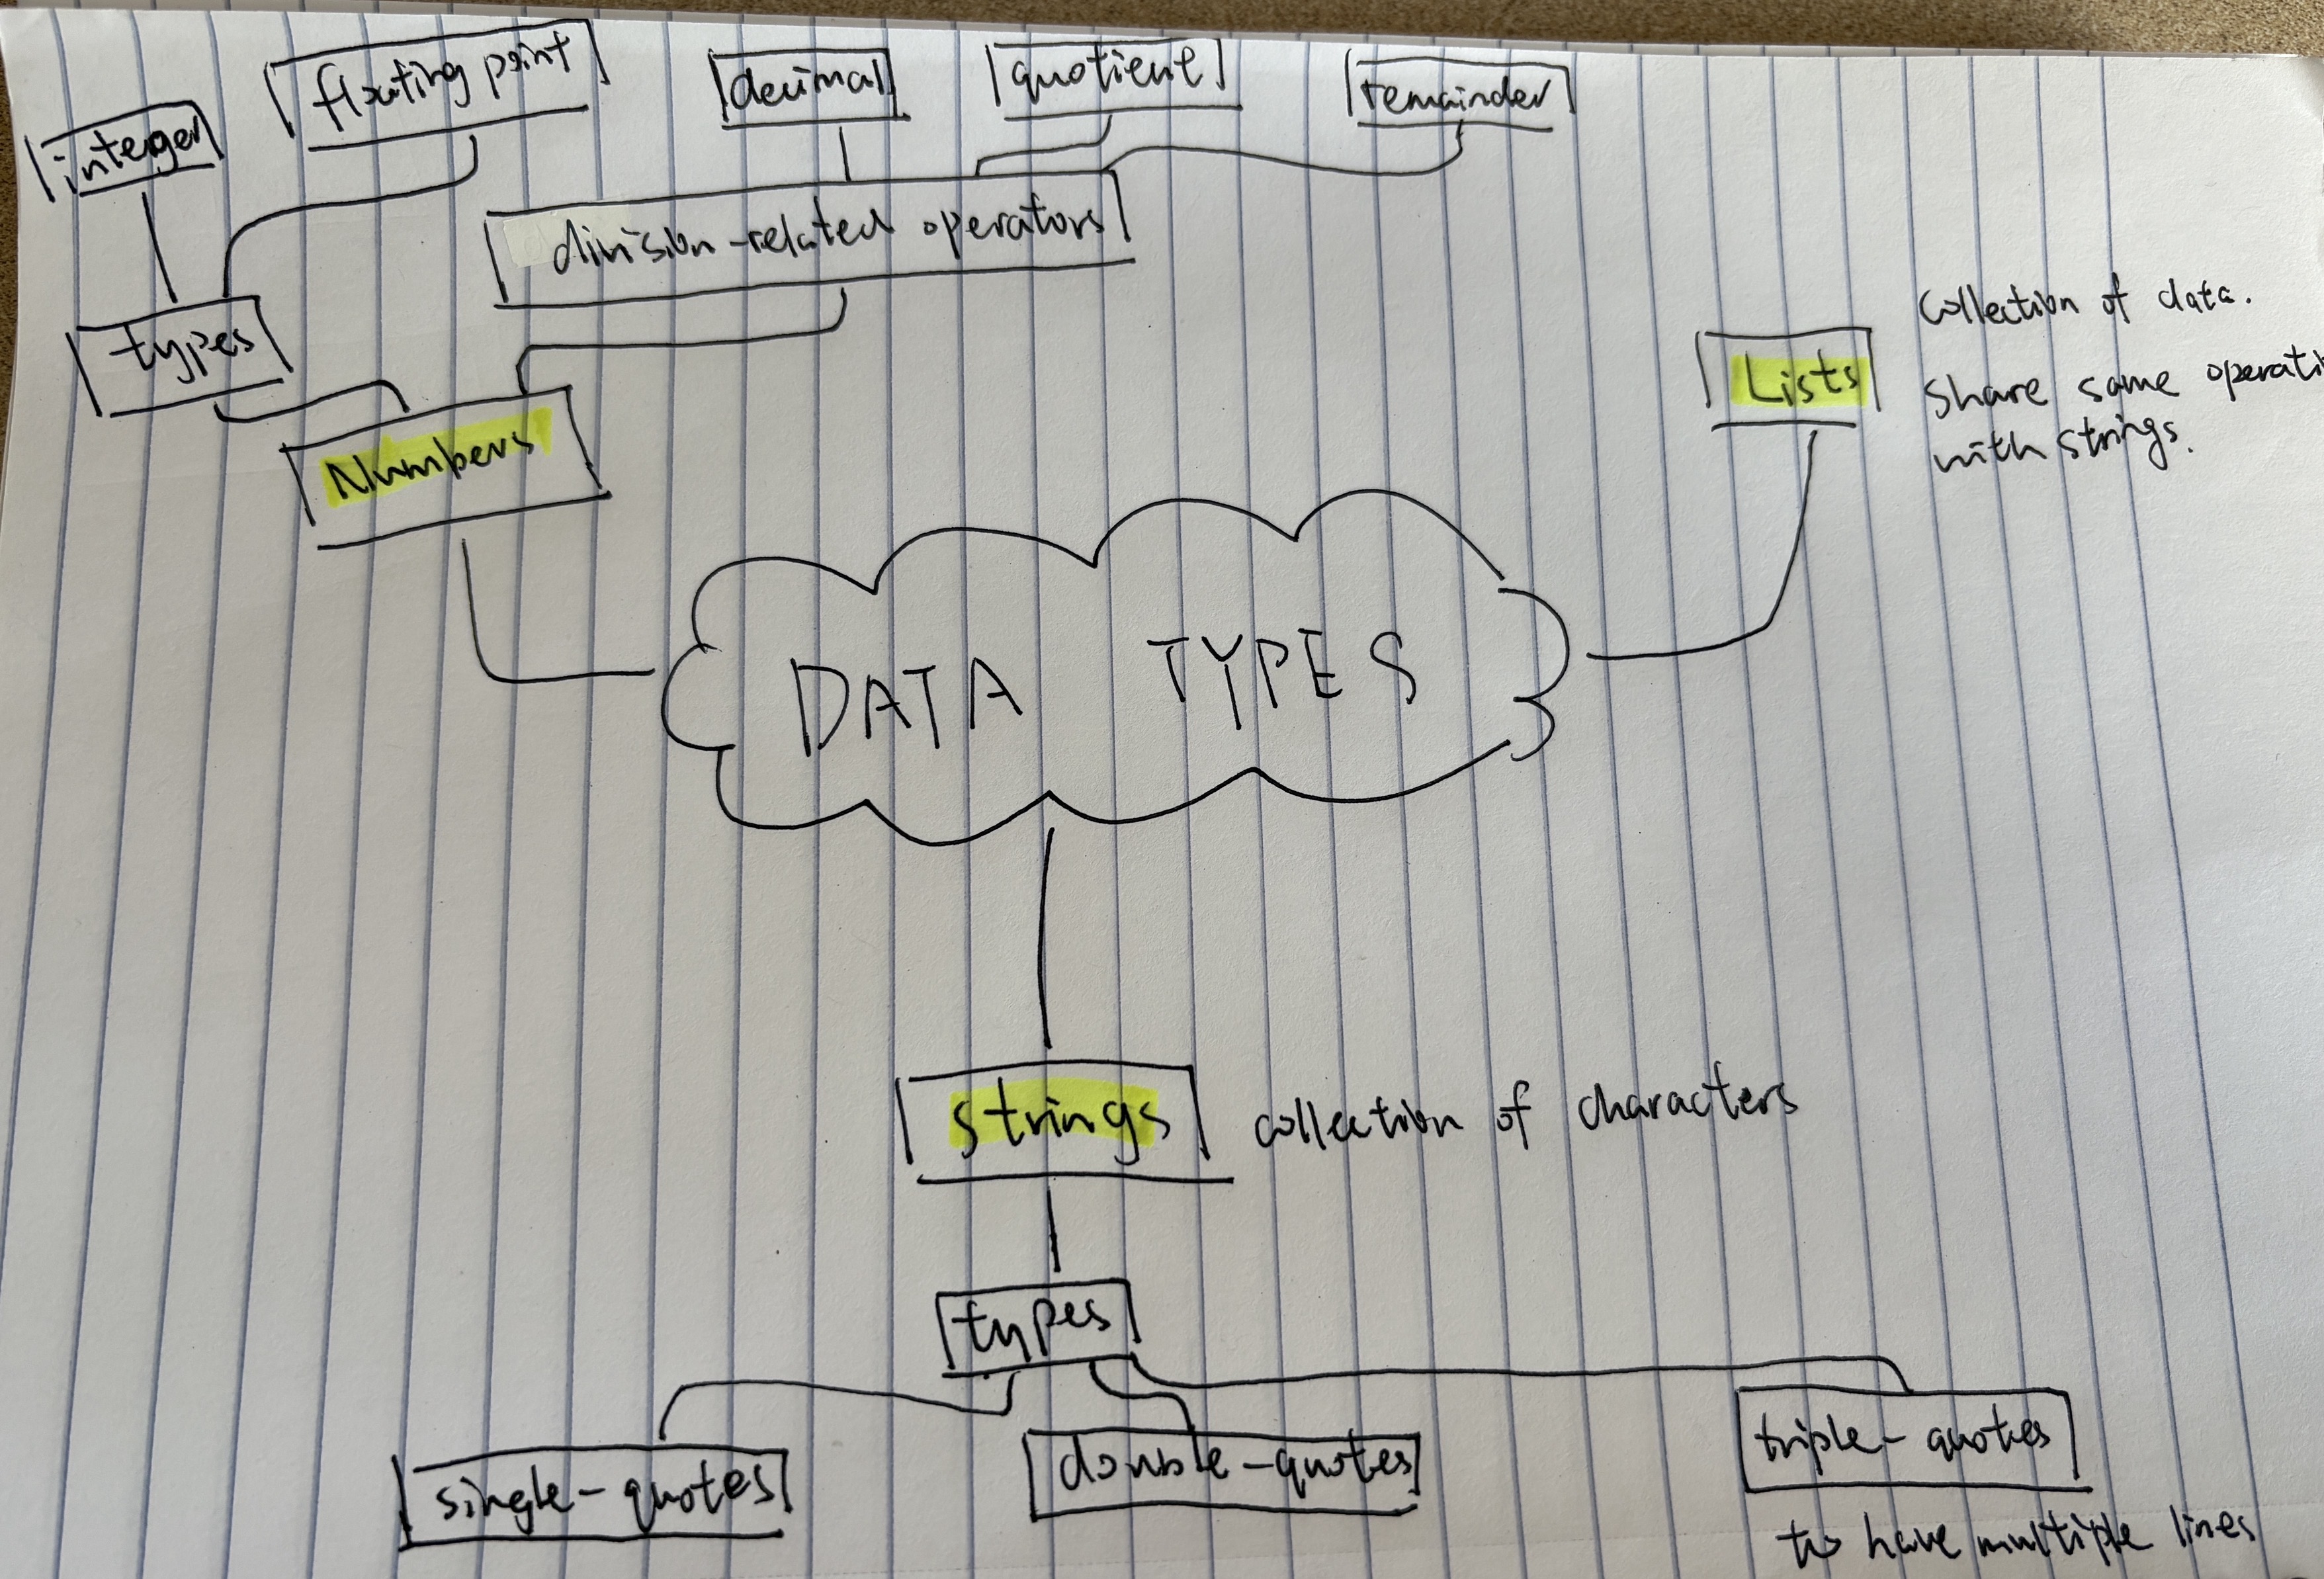 floating point
decimal
quotient
remainder
interger
division-related operators
types
Numbers
Lists
Collection of data.
Share same operati
with strings.
DATA TYPES
strings
collection of characters
types
single-quotes
double-quotes
triple-quotes
to have multiple lines